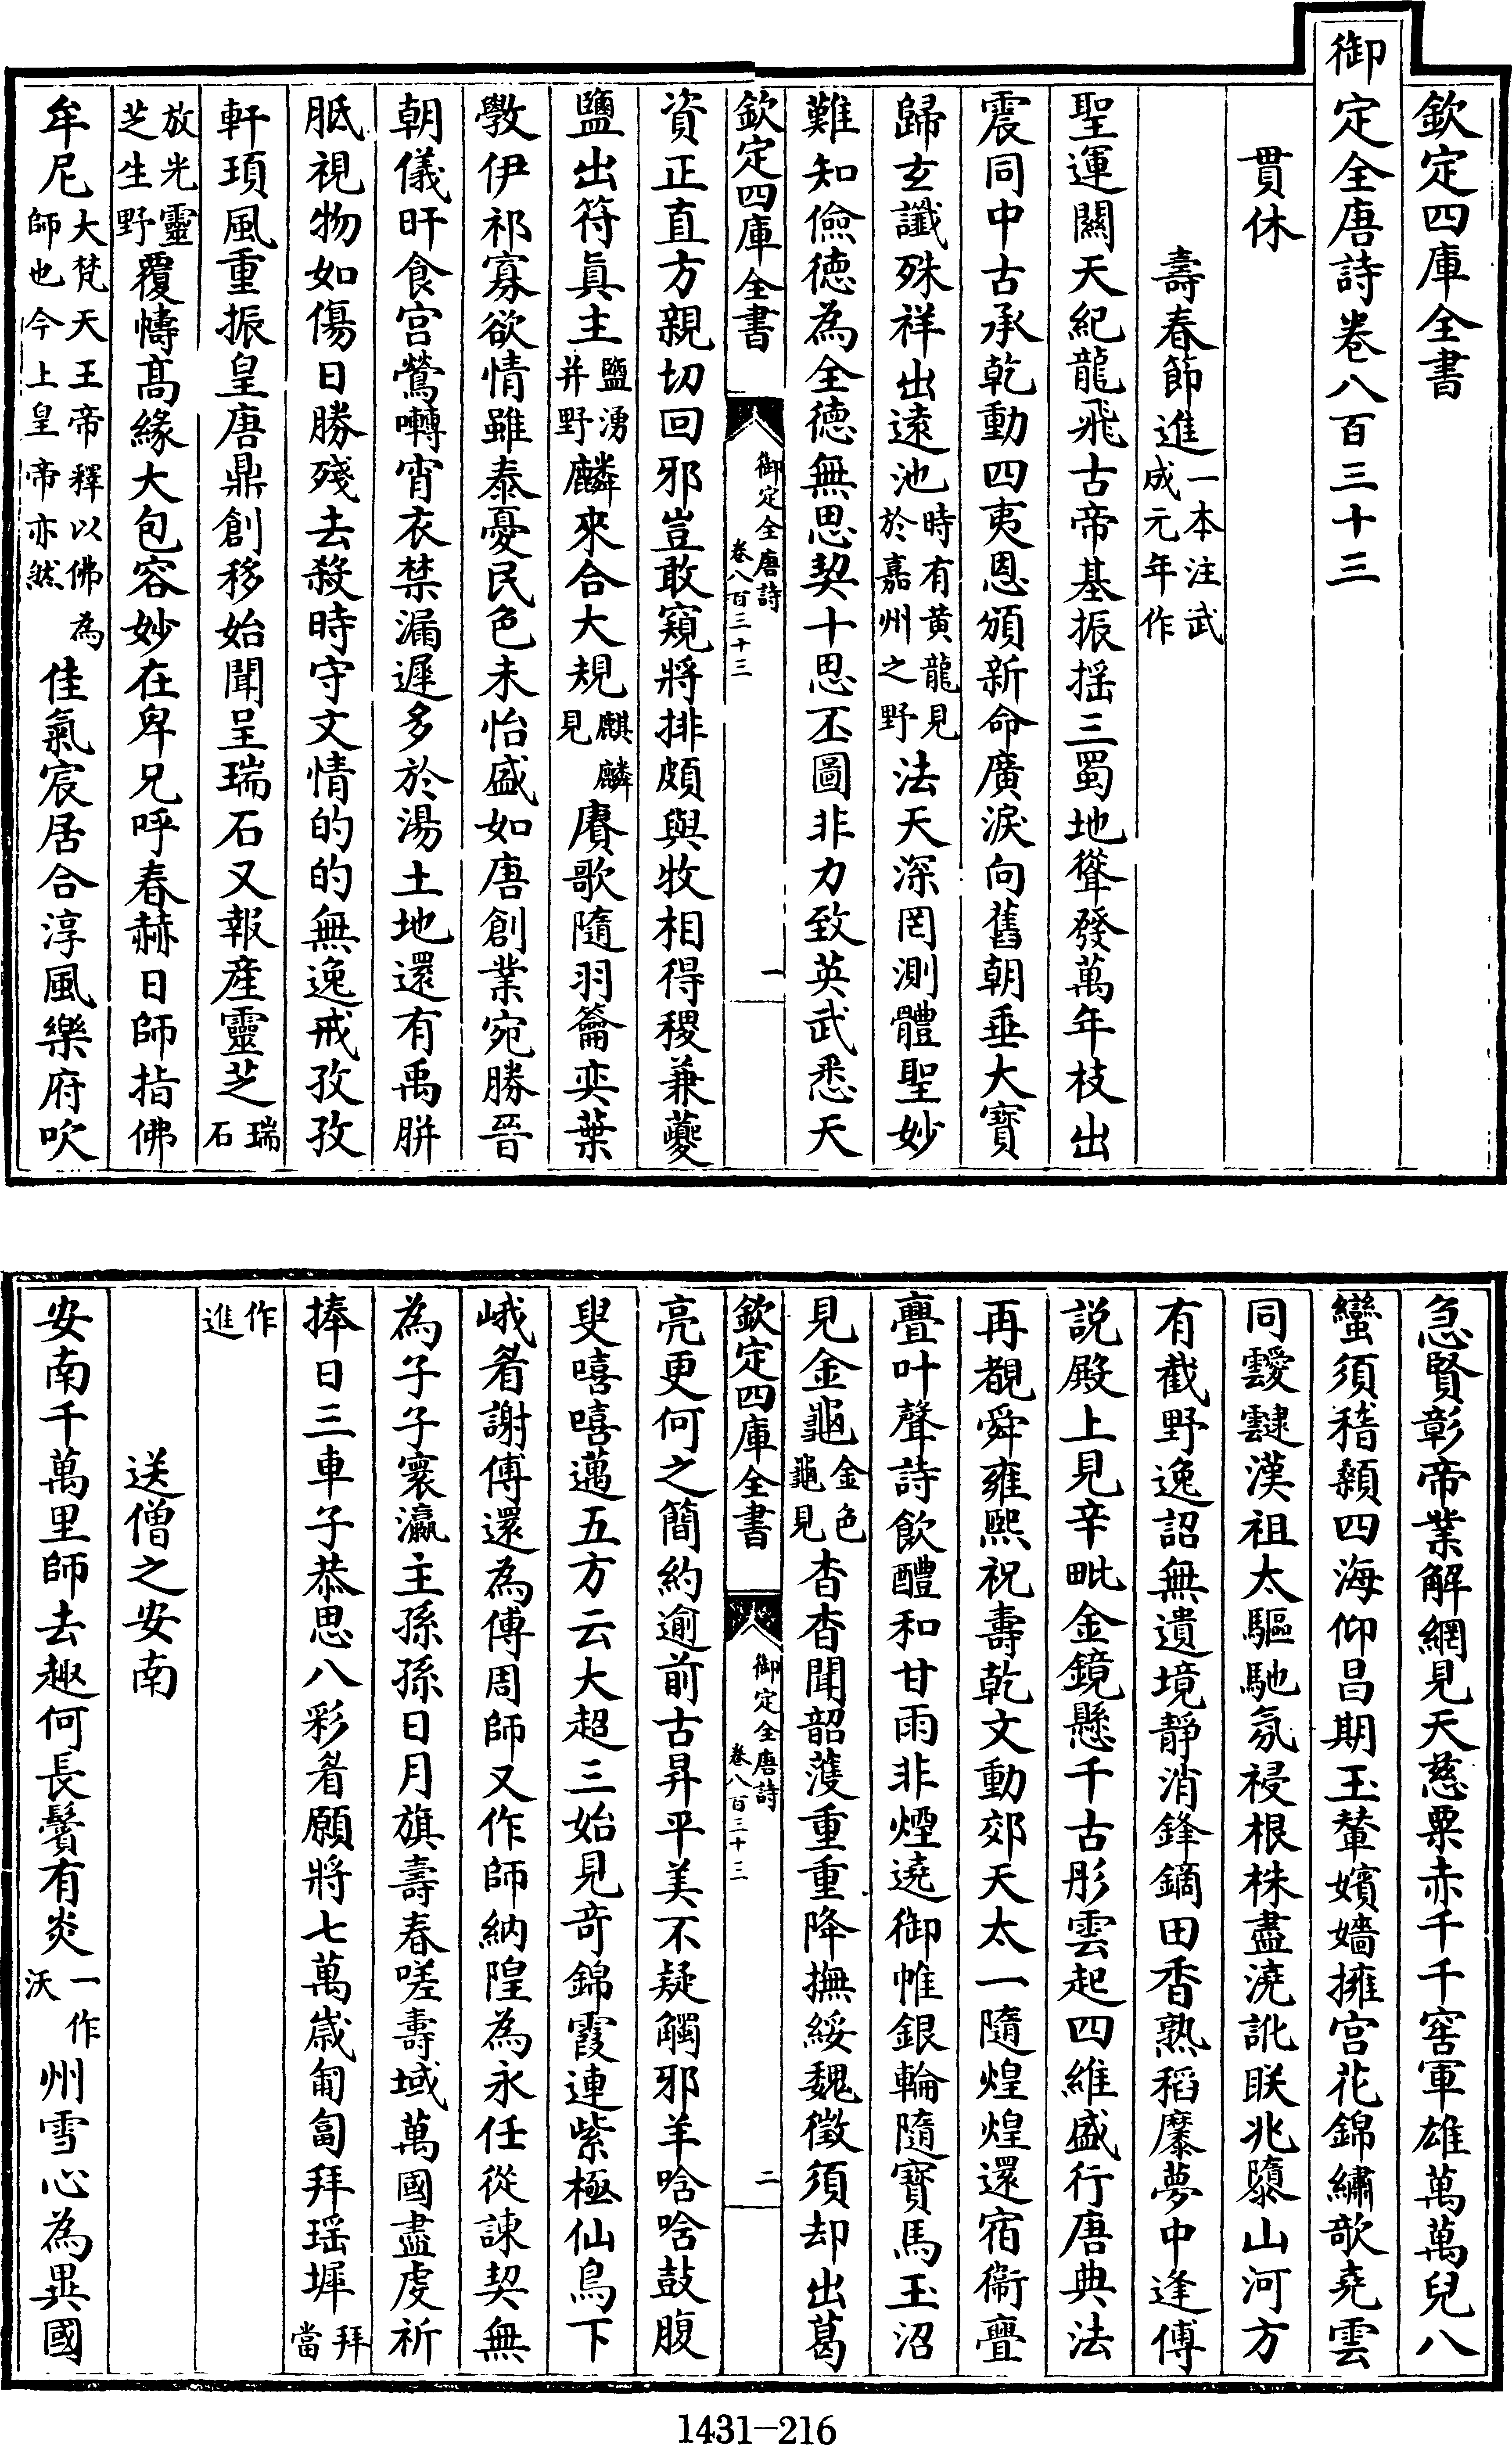 欽定四庫全書
御定全唐詩卷八百三十三
貫休
壽春節進一本注武成元年作
聖運關天紀龍飛古帝基振揺三蜀地聳發萬年枝出
震同中古承乾動四夷恩頒新命廣淚向舊朝垂大寳
歸玄讖殊祥出遠池時有黄龍見於嘉州之野法天深罔測體聖妙
難知儉德為全德無思契十思丕圖非力致英武悉天
欽定四庫全書
御定全唐詩
卷八百三十三
一
資正直方親切回邪豈敢窺將排頗與牧相得稷兼夔
鹽出符真主鹽湧并野麟來合大規麒麟見賡歌隨羽籥奕葉
斆伊祁寡欲情雖泰憂民色未怡盛如唐創業宛勝晉
朝儀旰食宫鶯囀宵衣禁漏遲多於湯土地還有禹胼
胝視物如傷日勝殘去殺時守文情的的無逸戒孜孜
軒頊風重振皇唐鼎創移始聞呈瑞石又報産靈芝瑞石
放光靈芝生野覆幬髙緣大包容妙在卑兄呼春赫日師指佛
牟尼大梵天王帝釋以佛為師也今上皇帝亦然佳氣宸居合淳風樂府吹
急賢彰帝業解網見天慈粟赤千千窖軍雄萬萬兒八
蠻須稽顙四海仰昌期玉輦嬪嬙擁宫花錦繡欹堯雲
同靉靆漢祖太驅馳氛祲根株盡澆訛朕兆隳山河方
有截野逸詔無遺境靜消鋒鏑田香熟稻穈夢中逢傅
説殿上見辛毗金鏡懸千古彤雲起四維盛行唐典法
再覩舜雍熙祝壽乾文動郊天太一隨煌煌還宿衞亹
亹叶聲詩飲醴和甘雨非煙遶御帷銀輪隨寳馬玉沼
見金龜金色龜見杳杳聞韶濩重重降撫綏魏徵須却出葛
欽定四庫全書
御定全唐詩
卷八百三十三
二
亮更何之簡約逾前古昇平美不疑觸邪羊唅唅鼓腹
叟嘻嘻邁五方云大超三始見竒錦霞連紫極仙鳥下
峨眉謝傅還為傅周師又作師納隍為永任從諫契無
為子子寰瀛主孫孫日月旗壽春嗟壽域萬國盡虔祈
捧日三車子恭思八彩眉願將七萬歲匍匐拜瑶墀拜當
作進
送僧之安南
安南千萬里師去趣何長鬢有炎一作沃州雪心為異國
1431-216